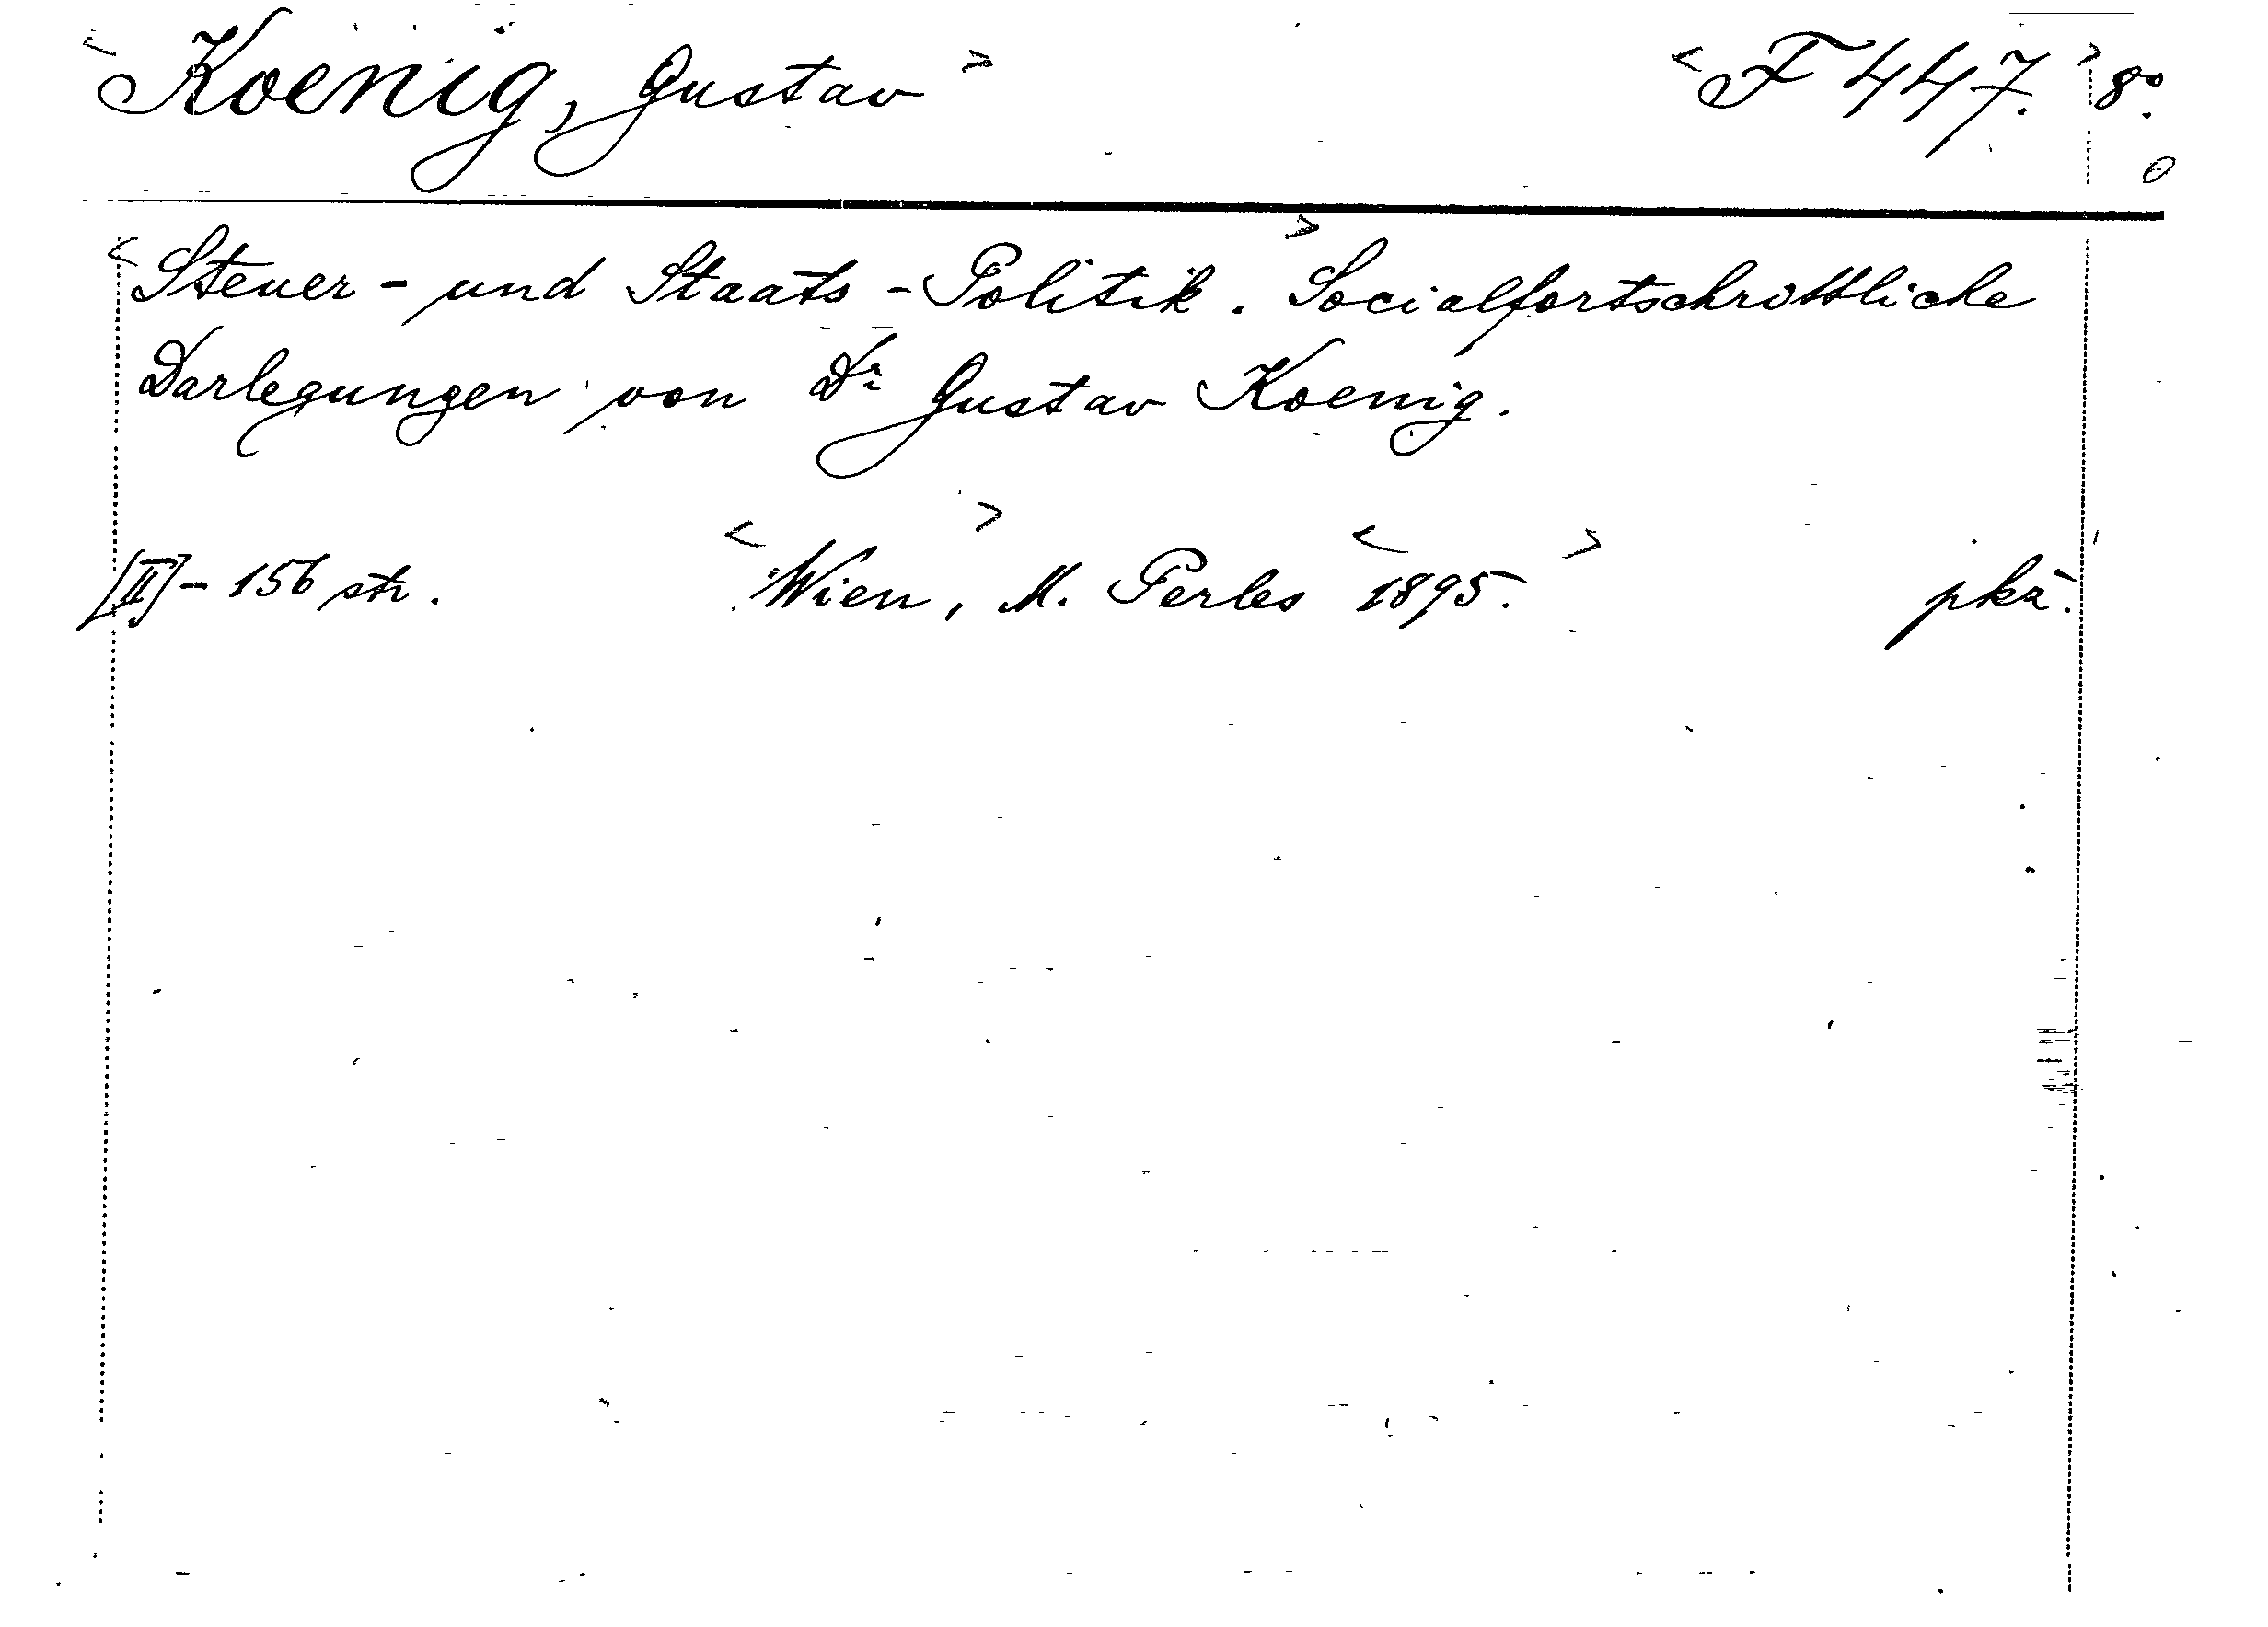 <Koenig, Gustav> <F 447.> 8º.
0
<Steuer- und Staats-Politik.> Socialfortschrittliche
Darlegungen von Dr Gustav Koenig.
[II]- 156 str. <Wien,> M. Perles <1895.>